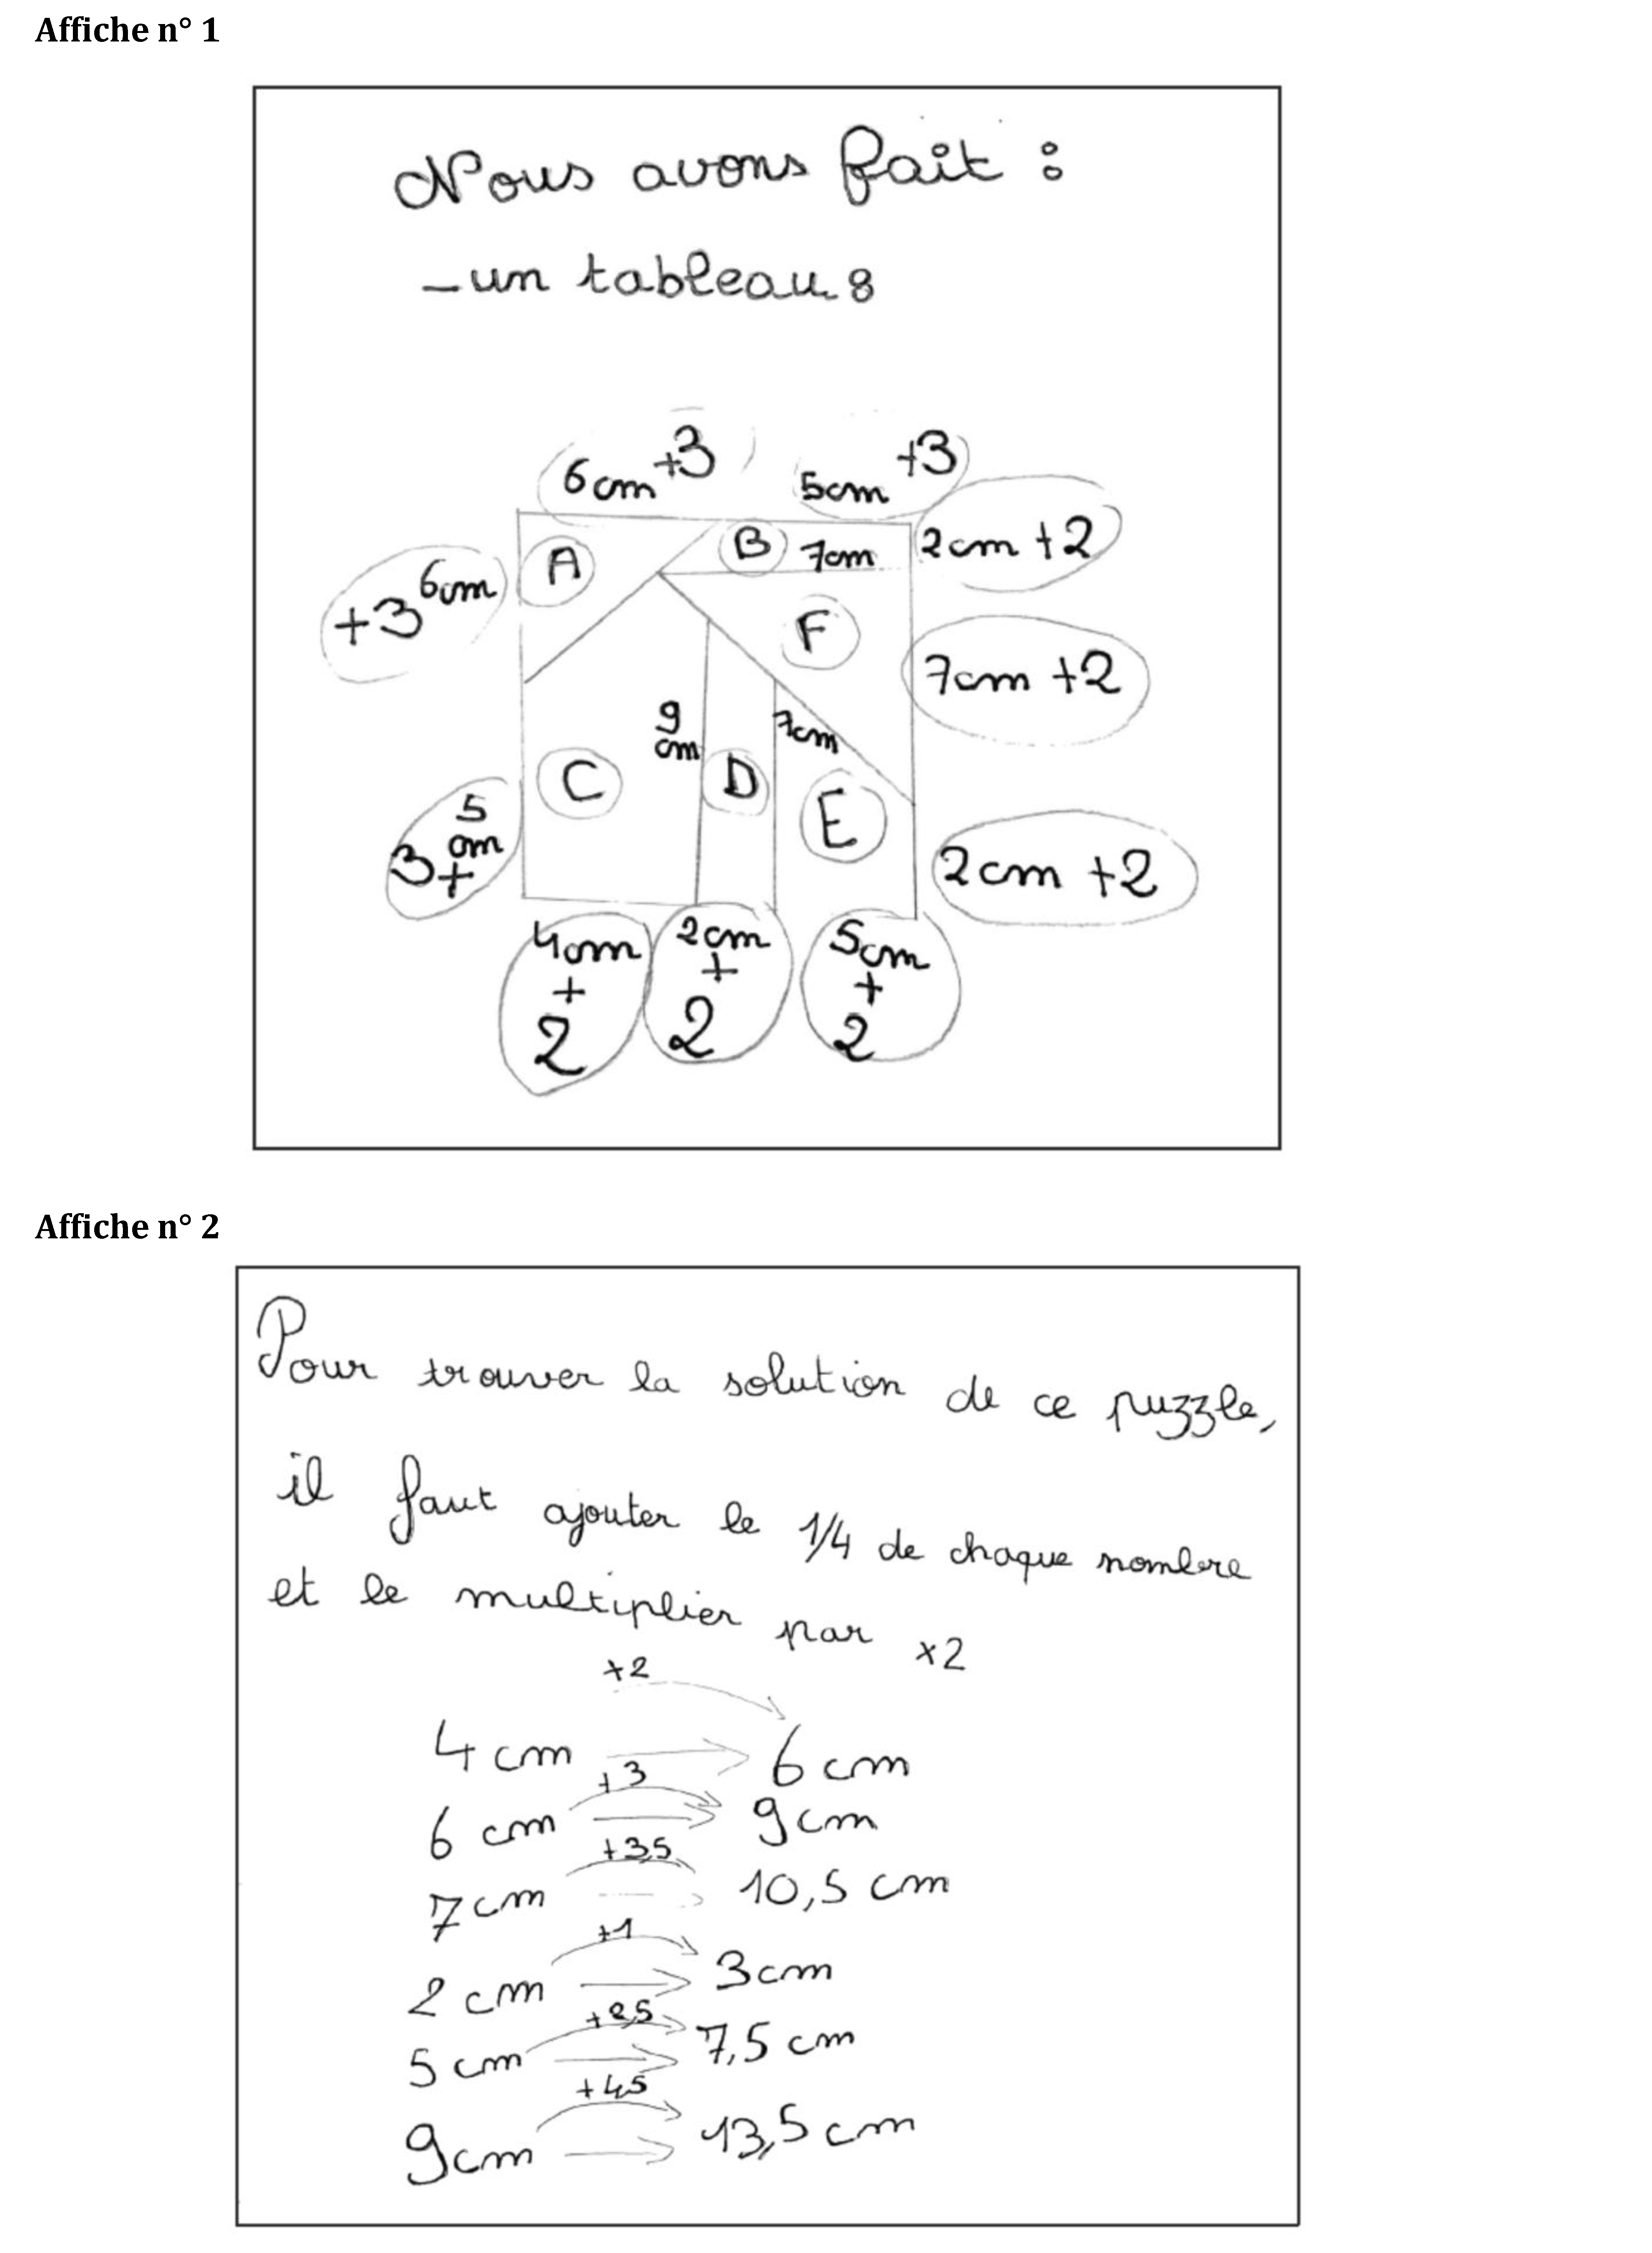 Affiche n° 1
Nous avons fait :
- un tableau :
6cm +3
5cm +3
A
B
7cm
2cm +2
+3 6cm
F
7cm +2
9
cm
7cm
C
D
E
5
cm
3+
2cm +2
4cm
+
2
2cm
+
2
5cm
+
2
Affiche n° 2
Pour trouver la solution de ce puzzle,
il faut ajouter le 1/4 de chaque nombre
et le multiplier par x2
+2
4 cm 6 cm
+3
6 cm 9cm
+3,5
7cm 10,5 cm
+1
2 cm 3cm
+2,5
5 cm 7,5 cm
+4,5
9cm 13,5 cm